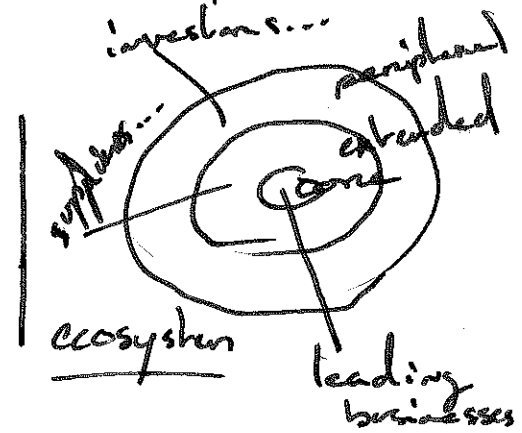 investors...
peripheral
extended
suppliers...
core
ecosystem
leading
businesses